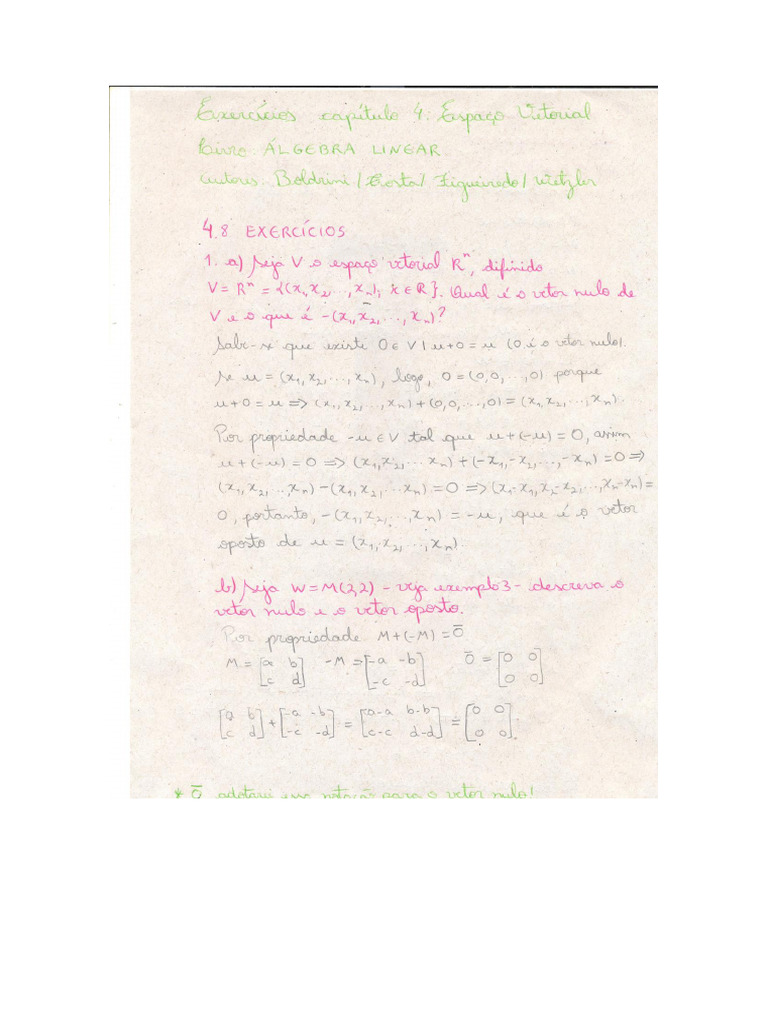 Exercícios capítulo 4: Espaço Vetorial
Livro: ÁLGEBRA LINEAR
autores: Boldrini / Costa / Figueiredo / Wetzler
4.8 EXERCÍCIOS
1. a) Seja V o espaço vetorial Rⁿ, difinido
V = Rⁿ = {(x₁, x₂, ..., xₙ); x ∈ R}. Qual é o vetor nulo de
V e o que é -(x₁, x₂, ..., xₙ)?
Sabe-se que existe 0 ∈ V | u+0 = u (0 é o vetor nulo).
Se u = (x₁, x₂, ..., xₙ), logo, 0 = (0,0, ..., 0) porque
u+0 = u ⇒ (x₁, x₂, ..., xₙ) + (0,0, ..., 0) = (x₁, x₂, ..., xₙ).
Por propriedade -u ∈ V tal que u+(-u) = 0, assim
u+(-u) = 0 ⇒ (x₁, x₂, ... xₙ) + (-x₁, -x₂, ..., -xₙ) = 0 ⇒
(x₁, x₂, ..., xₙ) - (x₁, x₂, ... xₙ) = 0 ⇒ (x₁-x₁, x₂-x₂, ..., xₙ-xₙ) =
0, portanto, -(x₁, x₂, ..., xₙ) = -u, que é o vetor
oposto de u = (x₁, x₂, ..., xₙ).
b) Seja W = M(2,2) - veja exemplo 3 - descreva o
vetor nulo e o vetor oposto.
Por propriedade M+(-M) = 0̄
M = [a b; c d] -M ⇒ [-a -b; -c -d] 0̄ = [0 0; 0 0]
[a b; c d] + [-a -b; -c -d] = [a-a b-b; c-c d-d] = [0 0; 0 0].
* 0̄ adotarei essa notação para o vetor nulo!